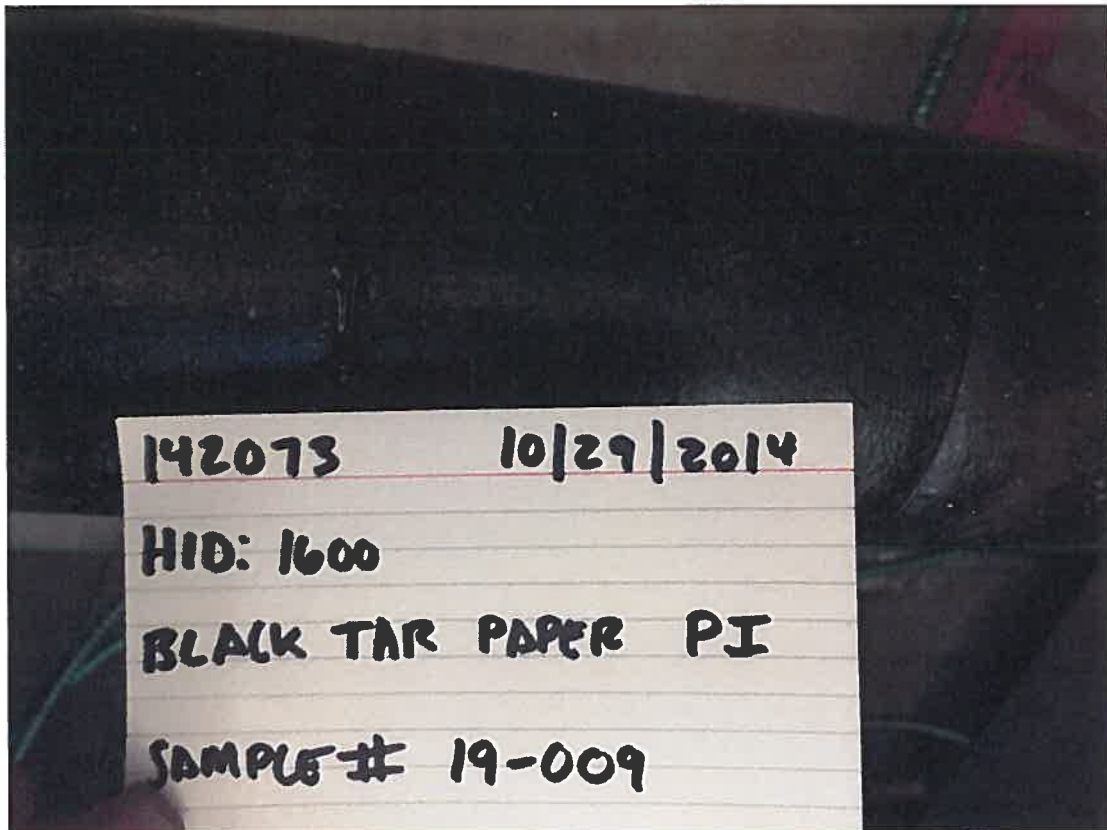 142073 10/29/2014
HID: 1600
BLACK TAR PAPER PI
SAMPLE# 19-009